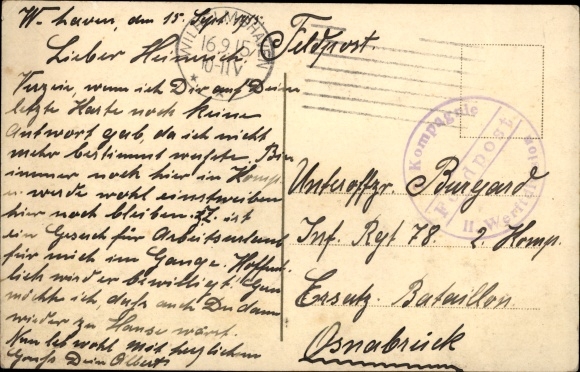 W-haven, den 15. Sept. 1915.
Lieber Heinrich,
Verzeie, wenn ich Dir auf Deine
letzte Karte noch keine
Antwort gab, da ich nicht
mehr bestimmt wusste. Bin
immer noch hier in Komp.
u. werde wohl einstweilen
hier noch bleiben. Z. ist
ein Gesuch für Arbeitsurlaub
für mich im Gange. Hoffent-
lich wird er bewilligt. Gern
möchte ich, dass auch Du dann
wieder zu Hause wärst.
Nun leb wohl mit herzlichem
Gruss Dein Albert
Feldpost.
WILHELMSHAVEN
16.9.15
10-11V
* *
Kompagnie
Feldpost
II. Werftdivision
Unteroffzr. Burgard
Inf. Rgt 78. 2. Komp.
Ersatz Bataillon
Osnabrück